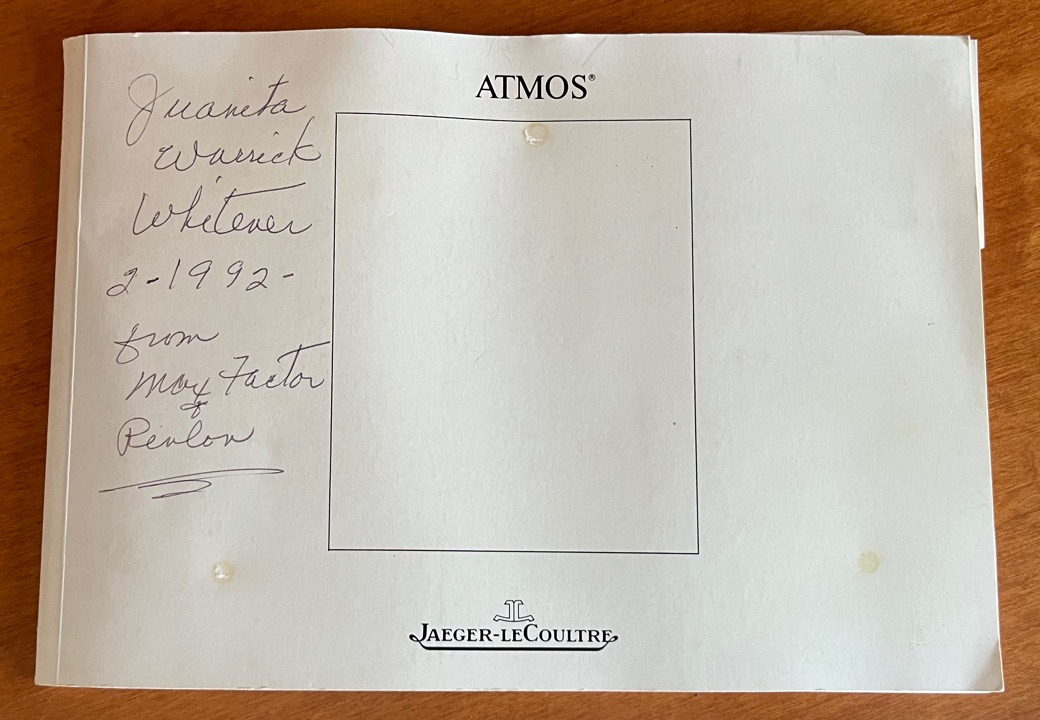 Juanita
Warrick
Whitener
2-1992-
from
Max Factor
&
Revlon
ATMOS®
JAEGER-LECOULTRE